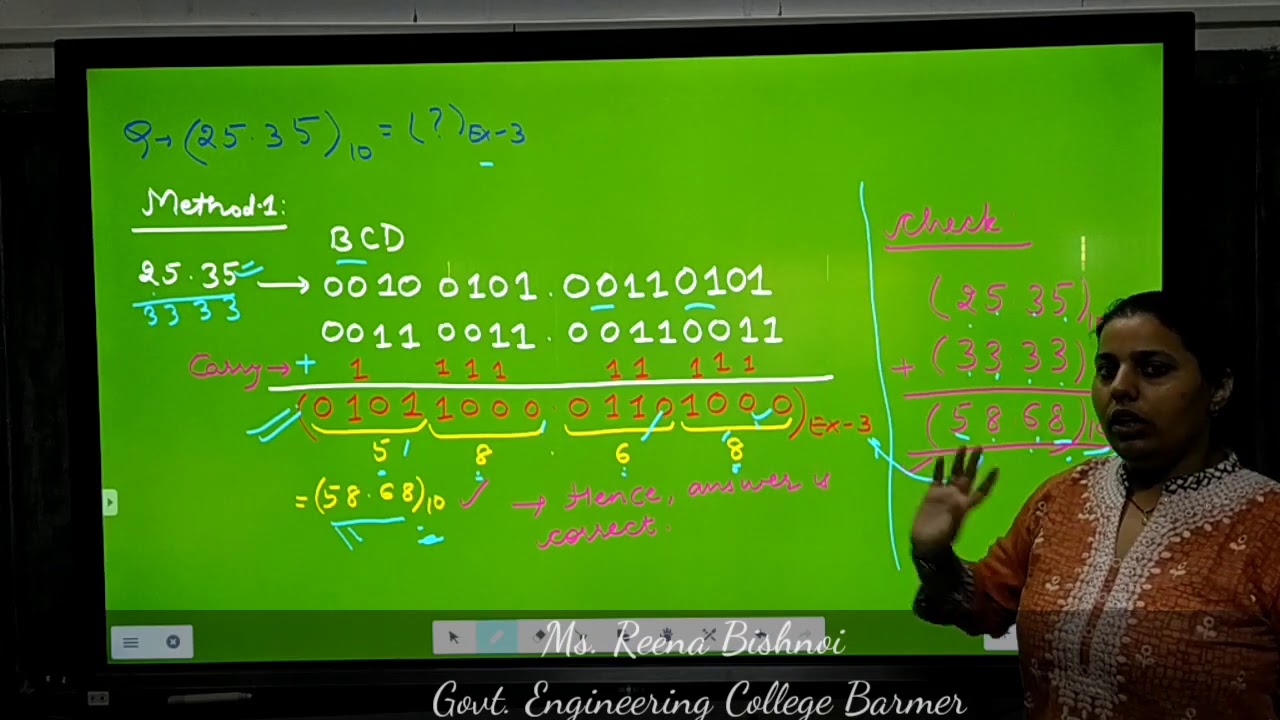 Q→ (25.35)10 = (?)Ex-3
Method-1:
BCD
25.35 → 0010 0101 . 0011 0101
3333
0011 0011 . 0011 0011
Carry→ + 1 111 11 111
(0101 1000 . 0110 1000)Ex-3
5 8 . 6 8
= (58.68)10 ✓ → Hence, answer is
correct.
Check
(25.35)
+ (33.33)
(58.68)10
Ms. Reena Bishnoi
Govt. Engineering College Barmer